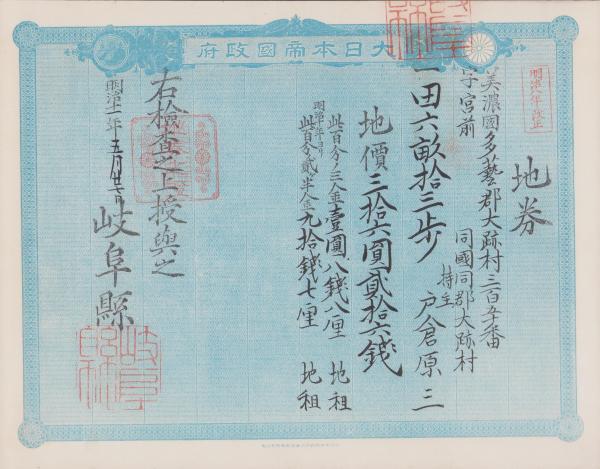 大日本帝國政府
明治八年改正
地券
美濃國多藝郡大跡村三百五十番
字宮前
同國同郡大跡村
持主 戸倉原三
一田六畝拾三歩
地價三拾六圓貳拾六錢
此百分ノ三金壹圓八錢八厘 地租
明治十年ヨリ
此百分ノ貳半金九拾錢七厘 地租
右檢査之上授與之
明治十一年五月廿日
岐阜縣